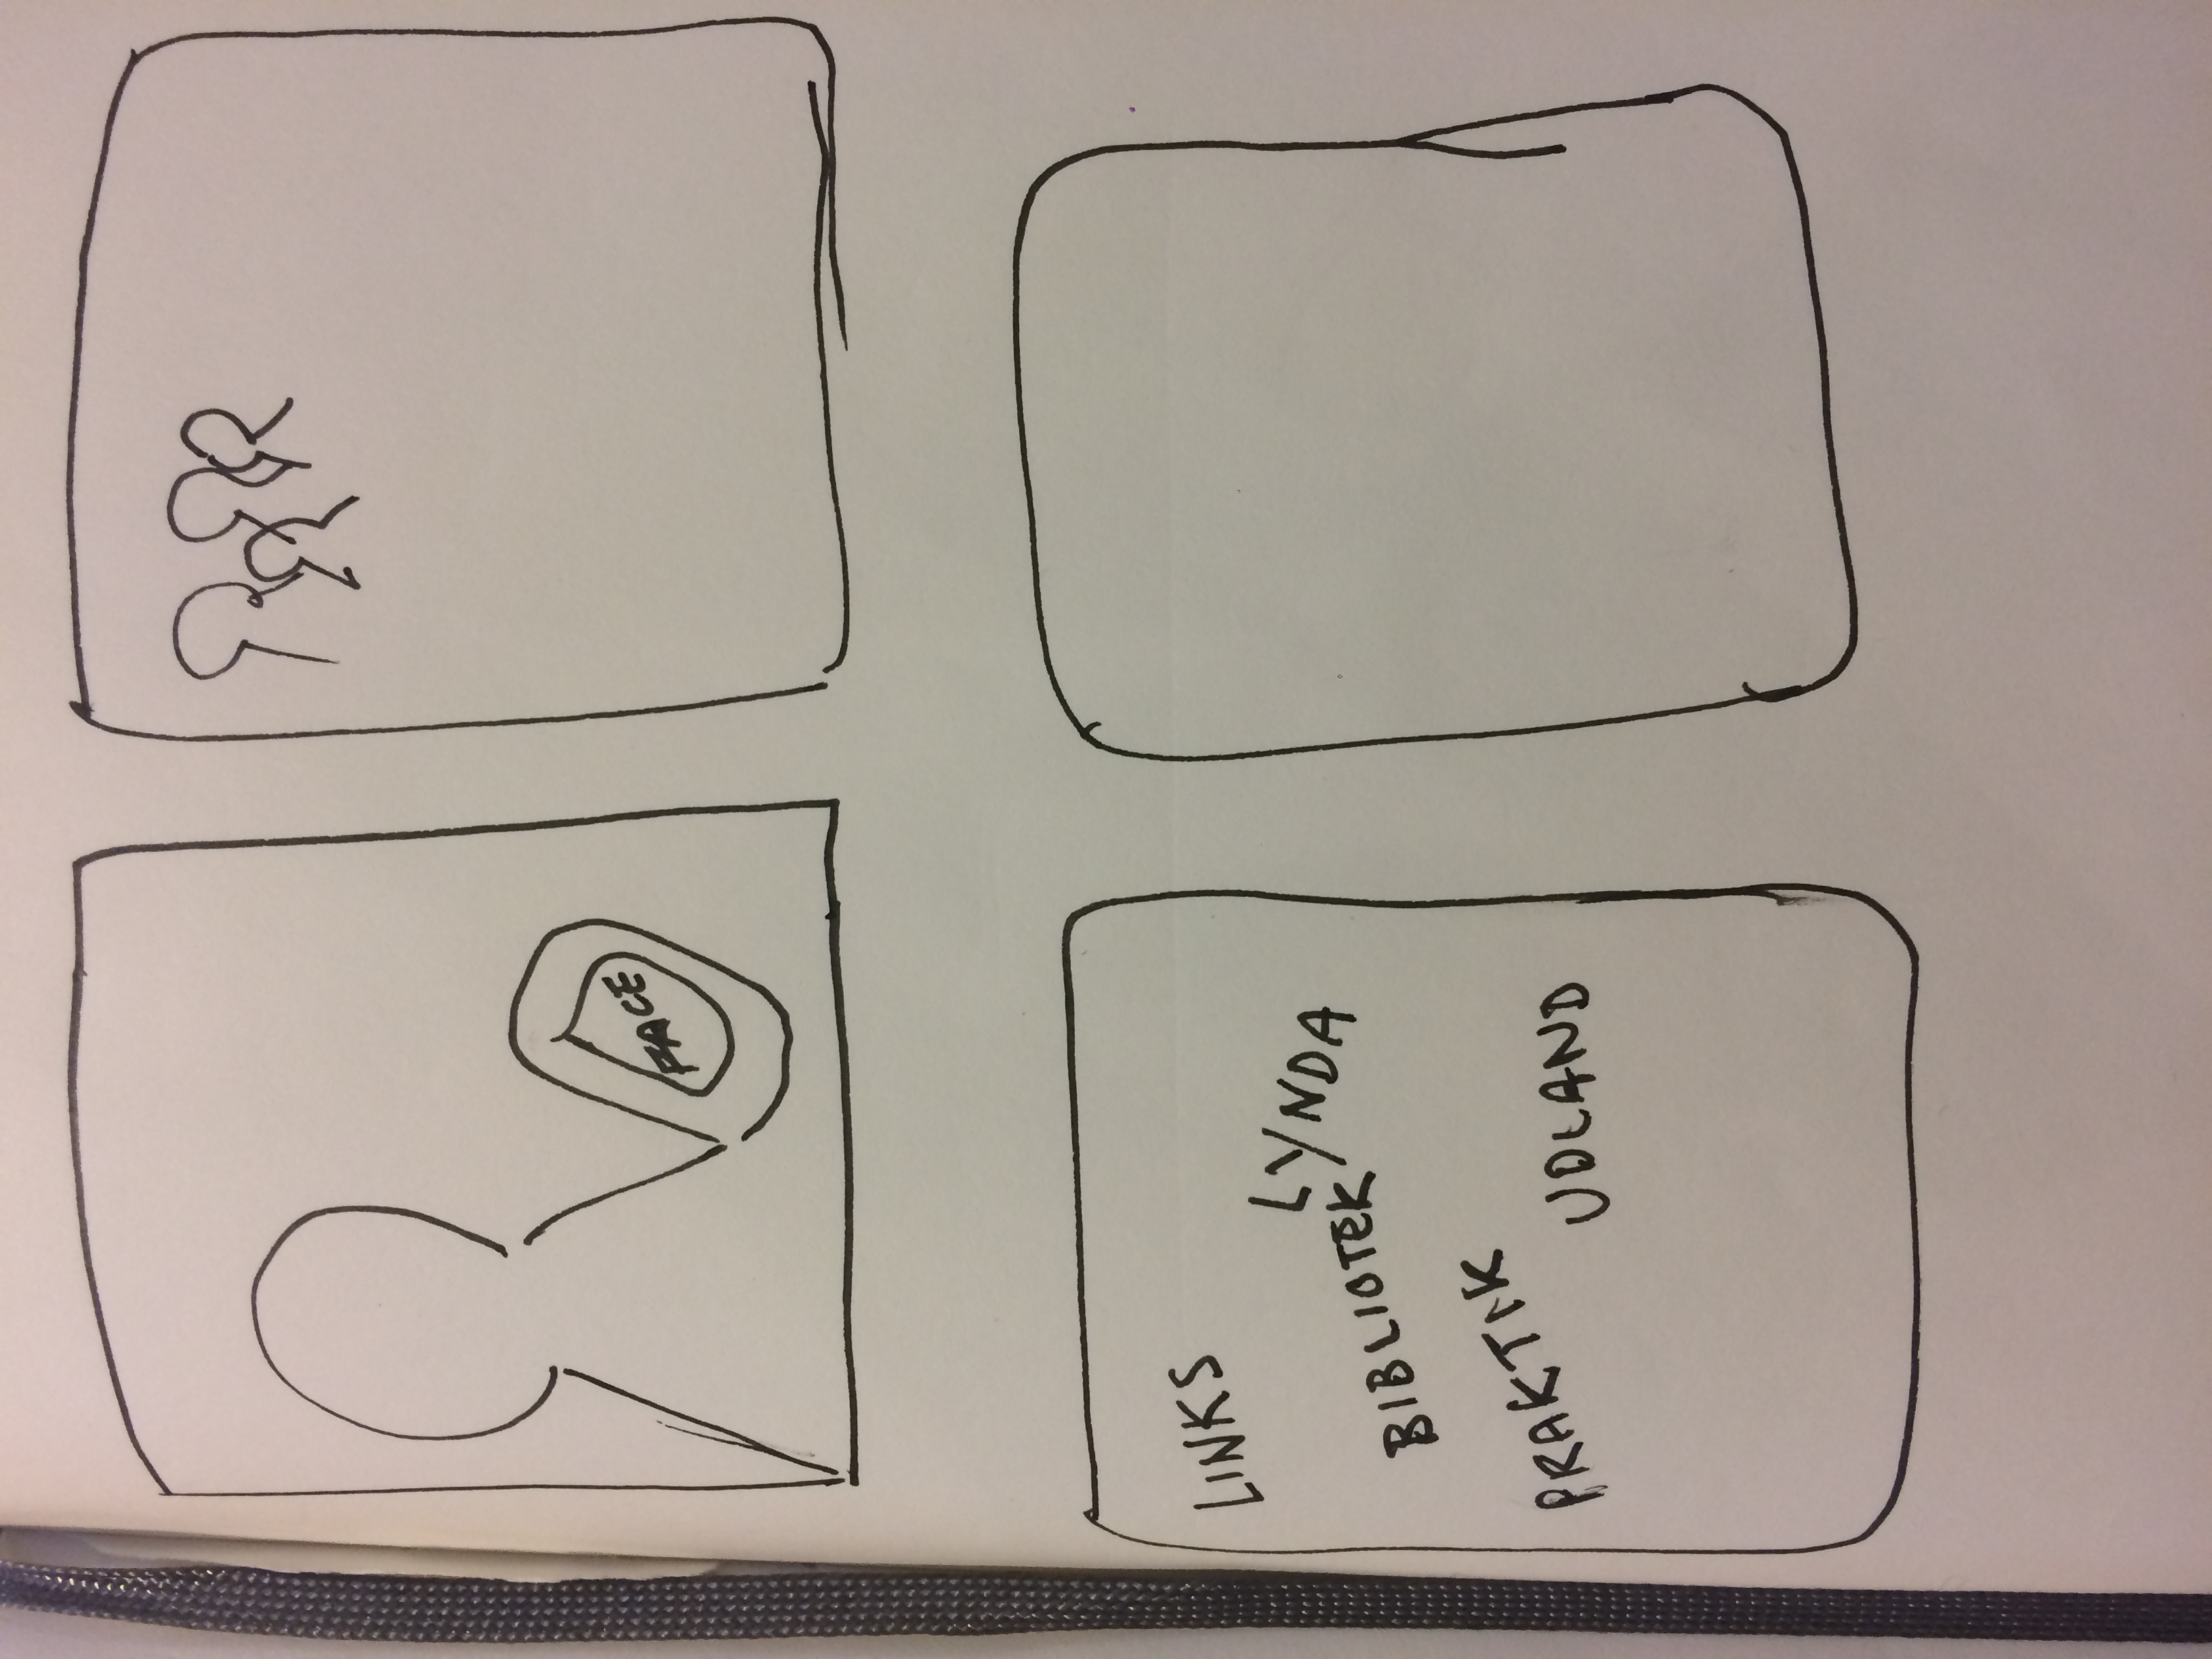 FACE
LINKS
LYNDA
BIBLIOTEK
PRAKTIK
UDLAND